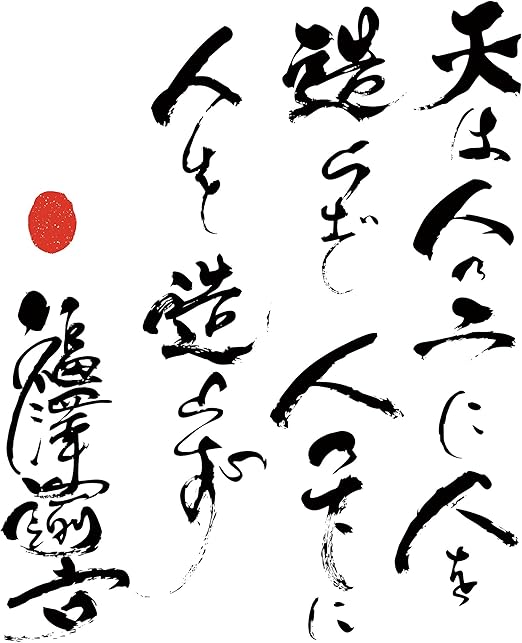 天は人の上に人を
造らず人の下に
人を造らず
福澤諭吉